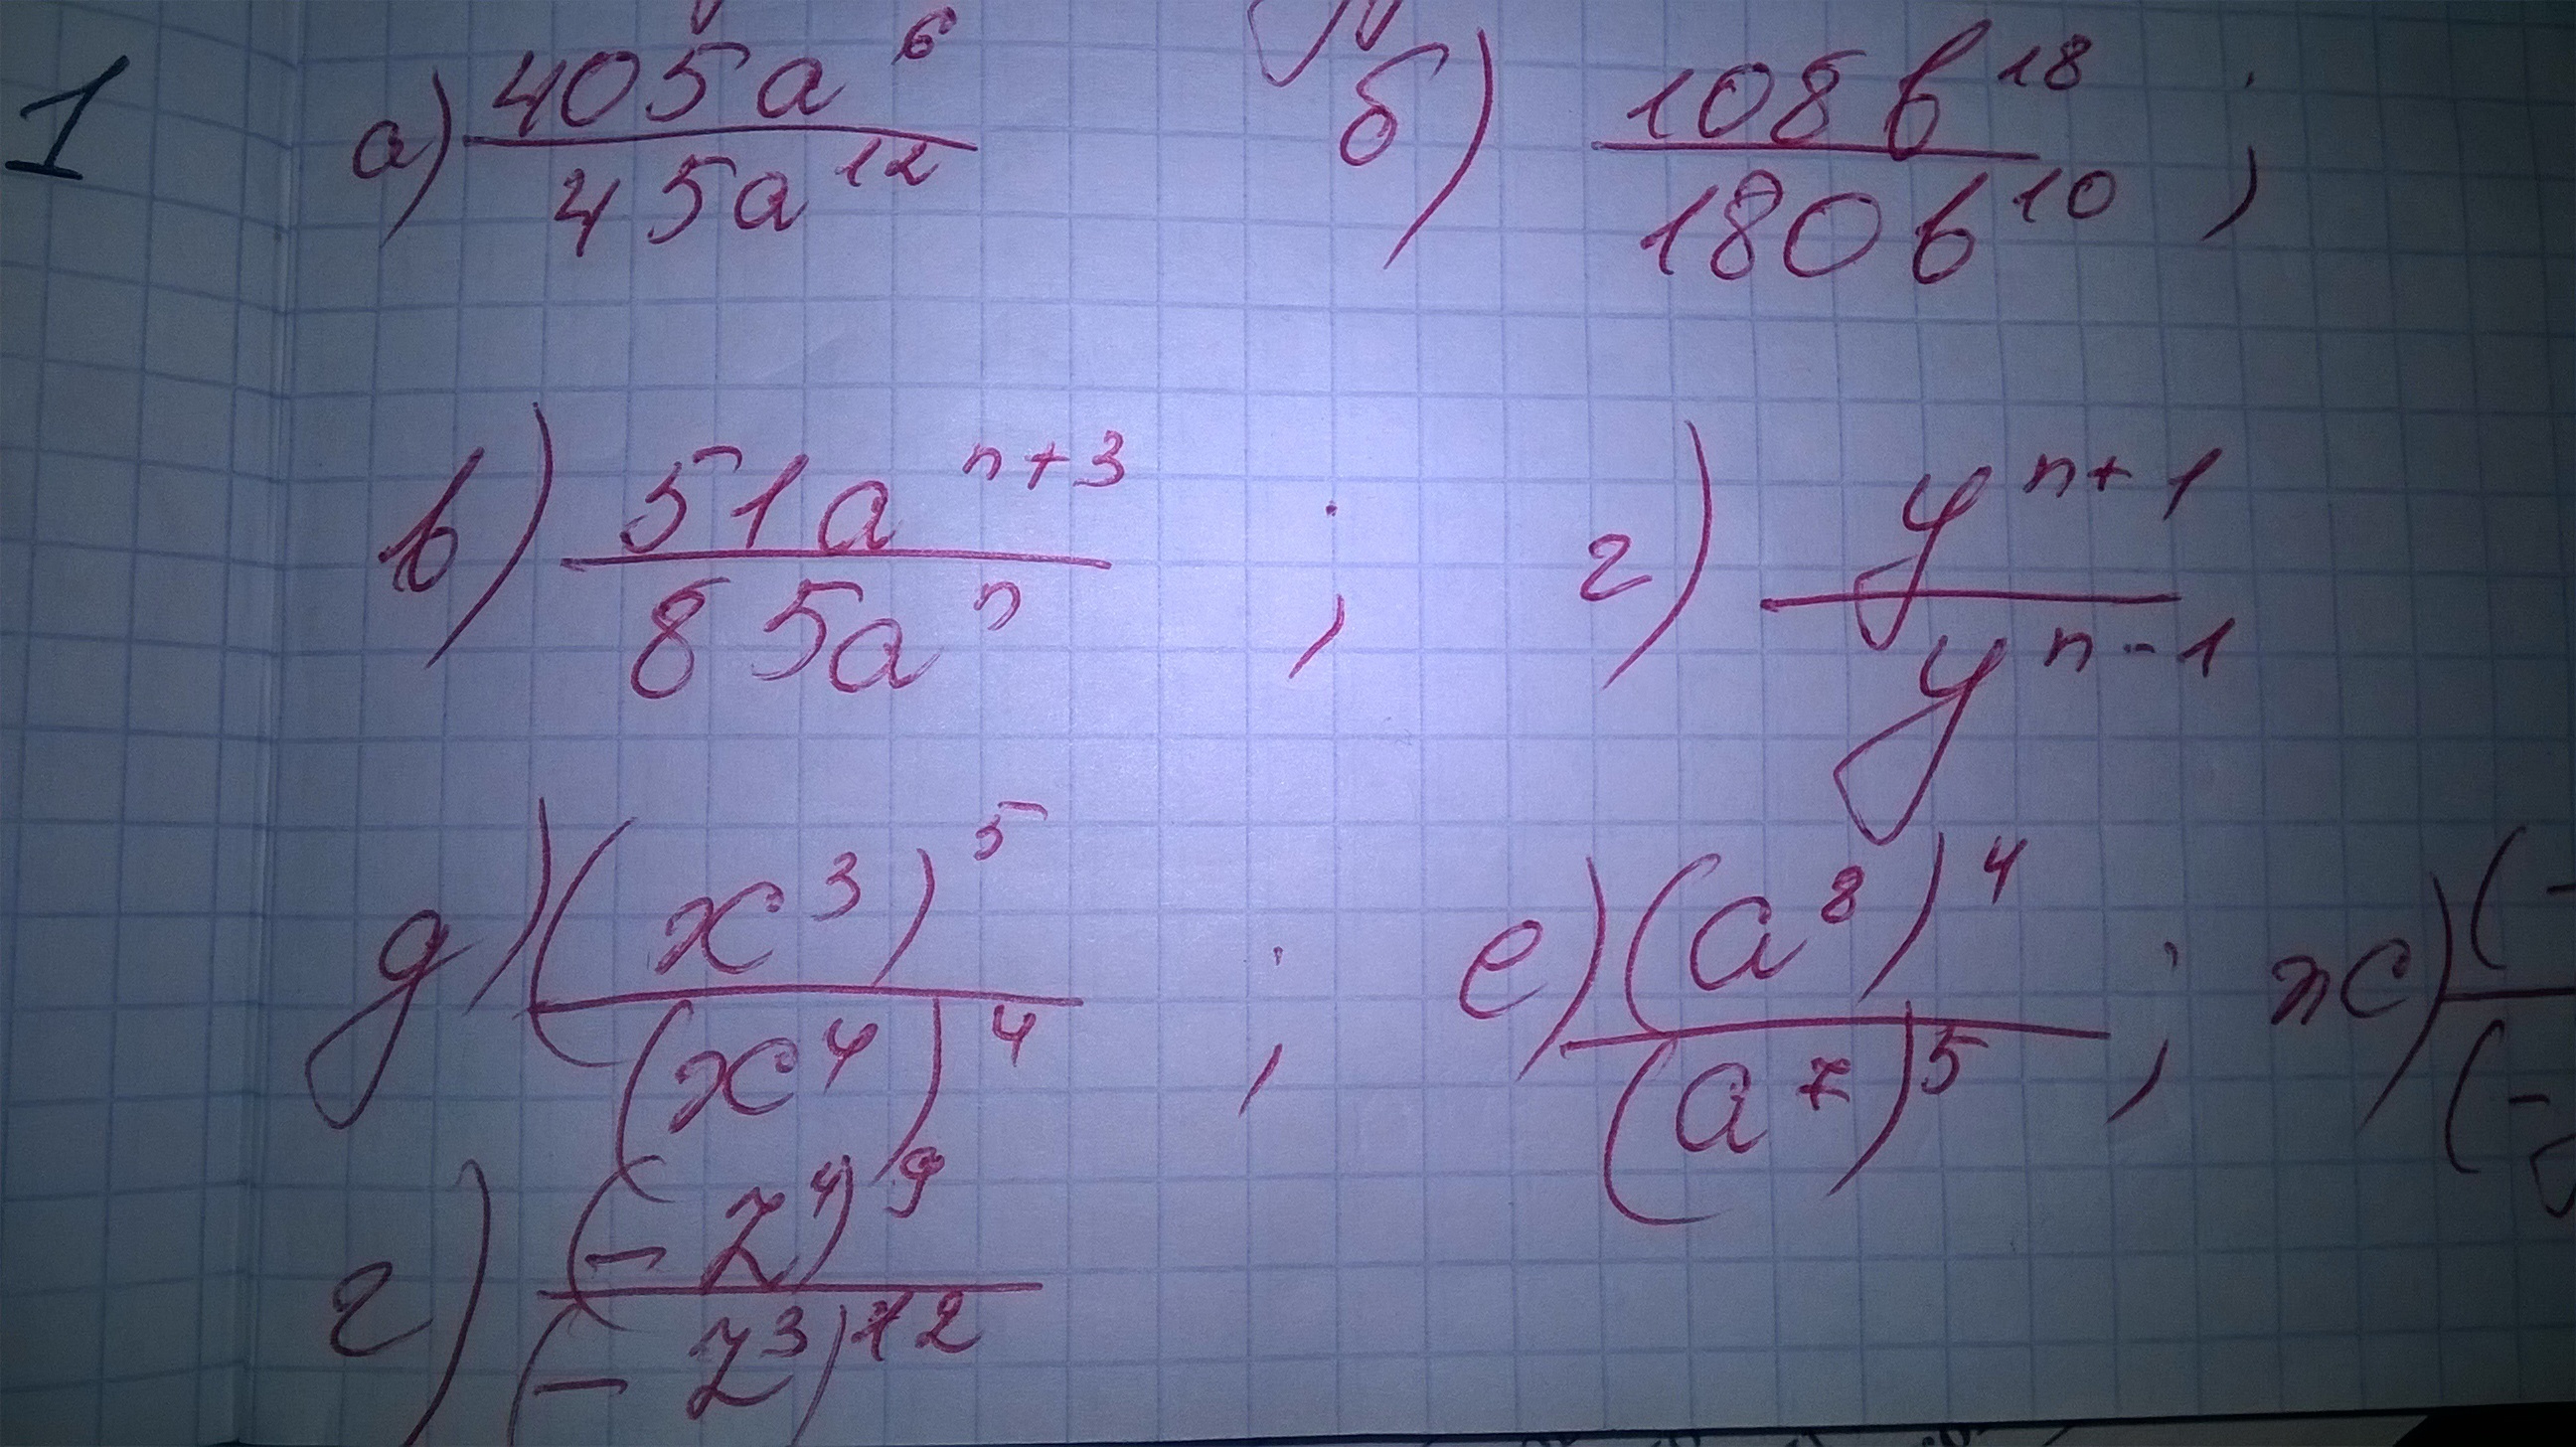 1 а) 405a^6 / 45a^12 б) 108b^18 / 180b^10 ;
в) 51a^(n+3) / 85a^n ; г) y^(n+1) / y^(n-1)
д) (x^3)^5 / (x^4)^4 ; е) (a^8)^4 / (a^7)^5 ; ж) (- / (-
г) (-z^4)^9 / (-z^3)^12